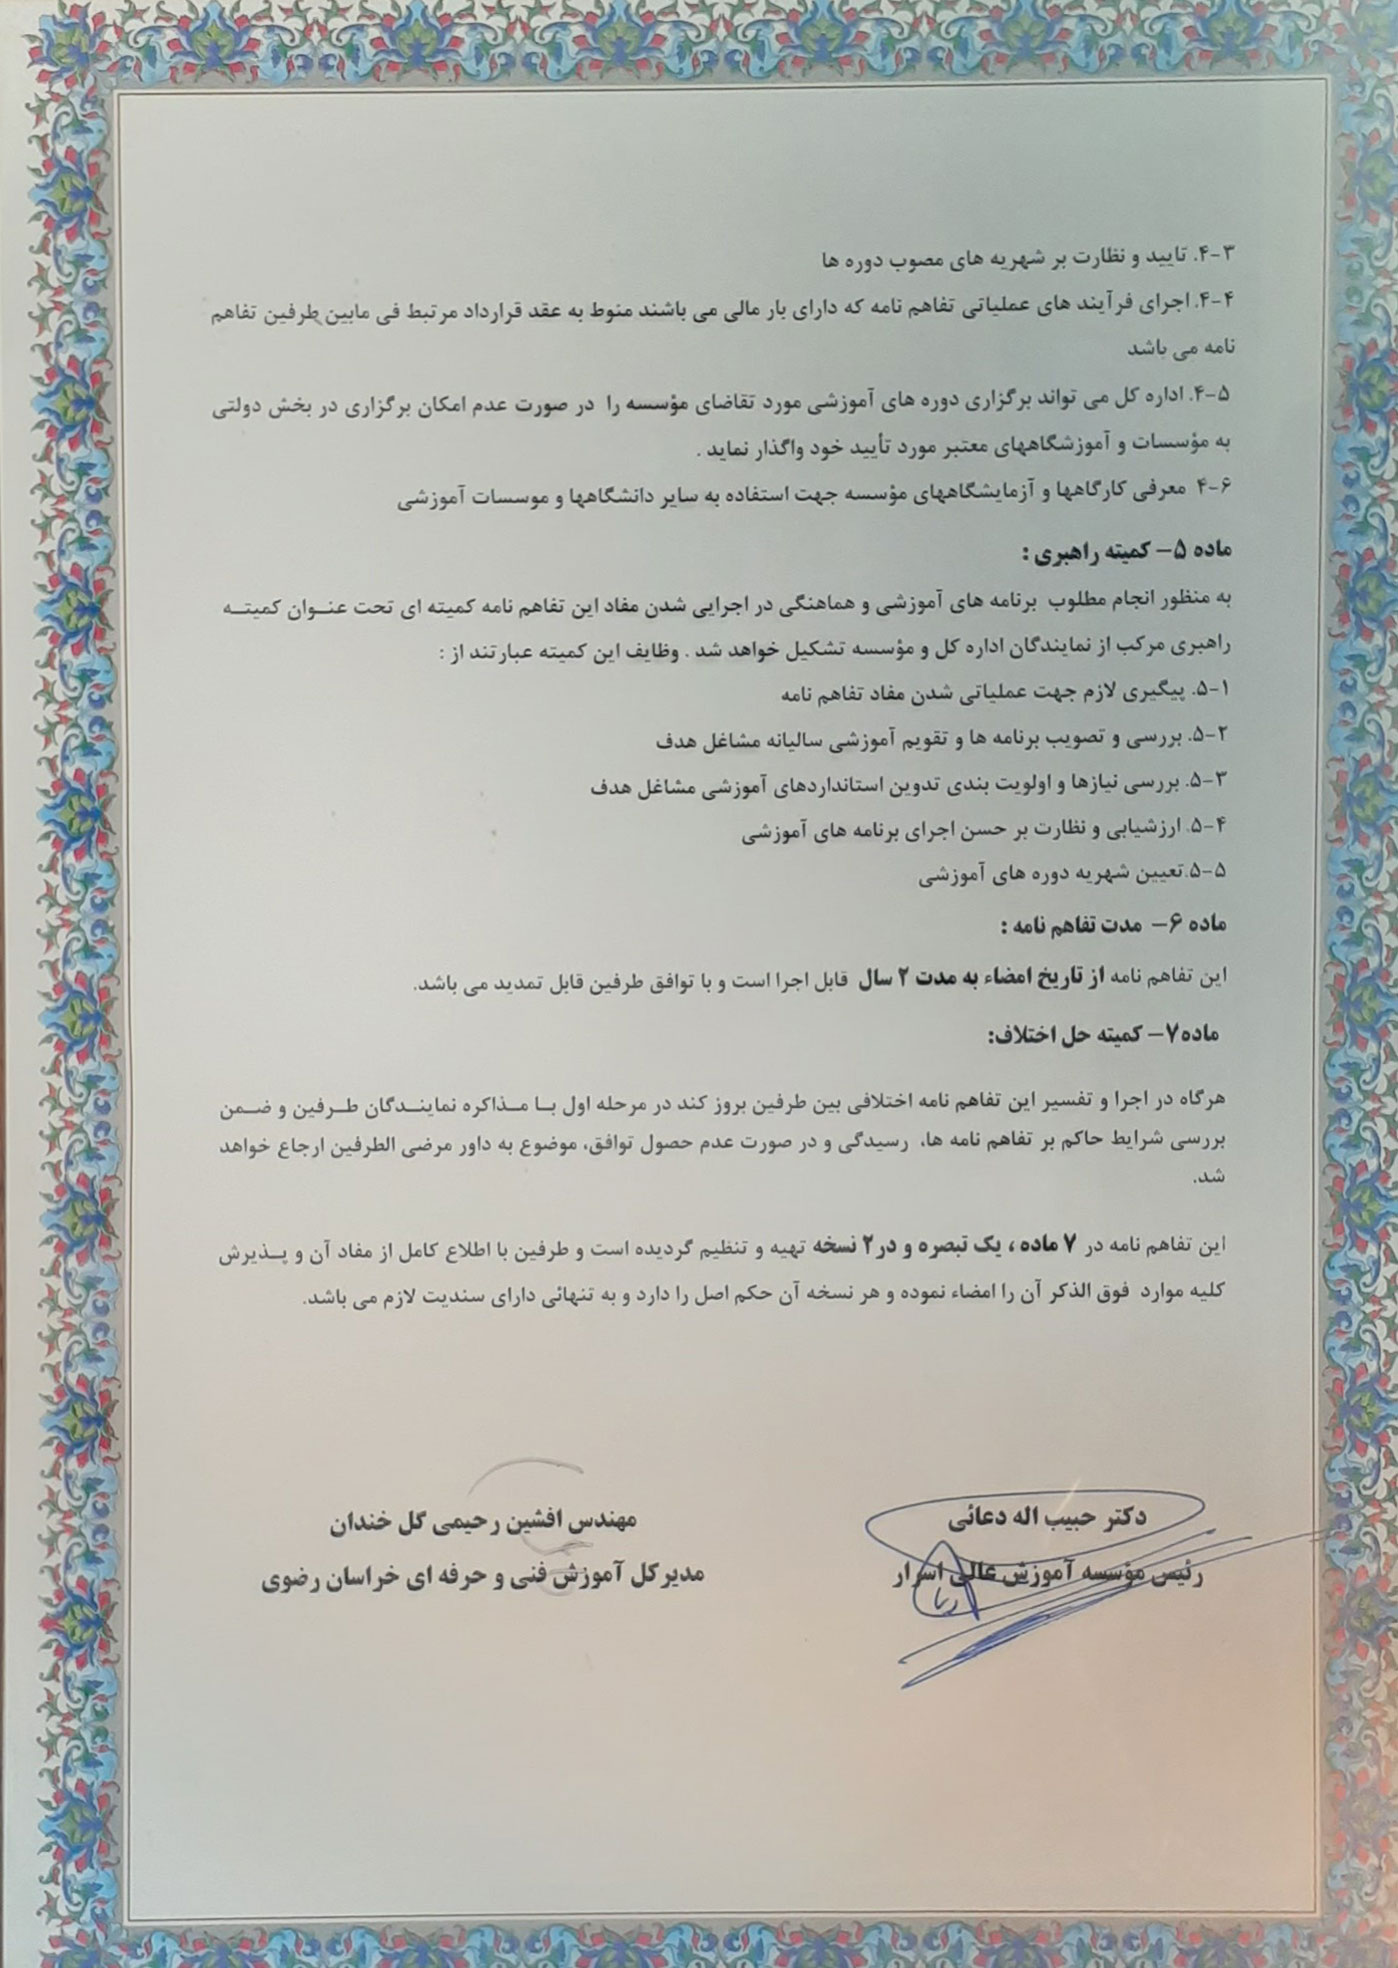 ۴-۳. تایید و نظارت بر شهریه های مصوب دوره ها
۴-۴. اجرای فرآیند های عملیاتی تفاهم نامه که دارای بار مالی می باشند منوط به عقد قرارداد مرتبط فی مابین طرفین تفاهم
نامه می باشد
۴-۵. اداره کل می تواند برگزاری دوره های آموزشی مورد تقاضای مؤسسه را در صورت عدم امکان برگزاری در بخش دولتی
به مؤسسات و آموزشگاههای معتبر مورد تأیید خود واگذار نماید .
۴-۶ معرفی کارگاهها و آزمایشگاههای مؤسسه جهت استفاده به سایر دانشگاهها و موسسات آموزشی
ماده ۵- کمیته راهبری :
به منظور انجام مطلوب برنامه های آموزشی و هماهنگی در اجرایی شدن مفاد این تفاهم نامه کمیته ای تحت عنـوان کمیتـه
راهبری مرکب از نمایندگان اداره کل و مؤسسه تشکیل خواهد شد . وظایف این کمیته عبارتند از :
۵-۱. پیگیری لازم جهت عملیاتی شدن مفاد تفاهم نامه
۵-۲. بررسی و تصویب برنامه ها و تقویم آموزشی سالیانه مشاغل هدف
۵-۳. بررسی نیازها و اولویت بندی تدوین استانداردهای آموزشی مشاغل هدف
۵-۴. ارزشیابی و نظارت بر حسن اجرای برنامه های آموزشی
۵-۵.تعیین شهریه دوره های آموزشی
ماده ۶- مدت تفاهم نامه :
این تفاهم نامه از تاریخ امضاء به مدت ۲ سال قابل اجرا است و با توافق طرفین قابل تمدید می باشد.
ماده۷- کمیته حل اختلاف:
هرگاه در اجرا و تفسیر این تفاهم نامه اختلافی بین طرفین بروز کند در مرحله اول بـا مـذاکره نماینـدگان طـرفین و ضـمن
بررسی شرایط حاکم بر تفاهم نامه ها، رسیدگی و در صورت عدم حصول توافق، موضوع به داور مرضی الطرفین ارجاع خواهد
شد.
این تفاهم نامه در ۷ ماده ، یک تبصره و در۲ نسخه تهیه و تنظیم گردیده است و طرفین با اطلاع کامل از مفاد آن و پـذیرش
کلیه موارد فوق الذکر آن را امضاء نموده و هر نسخه آن حکم اصل را دارد و به تنهائی دارای سندیت لازم می باشد.
دکتر حبیب اله دعائی
رئیس مؤسسه آموزش عالی اسرار
مهندس افشین رحیمی گل خندان
مدیرکل آموزش فنی و حرفه ای خراسان رضوی